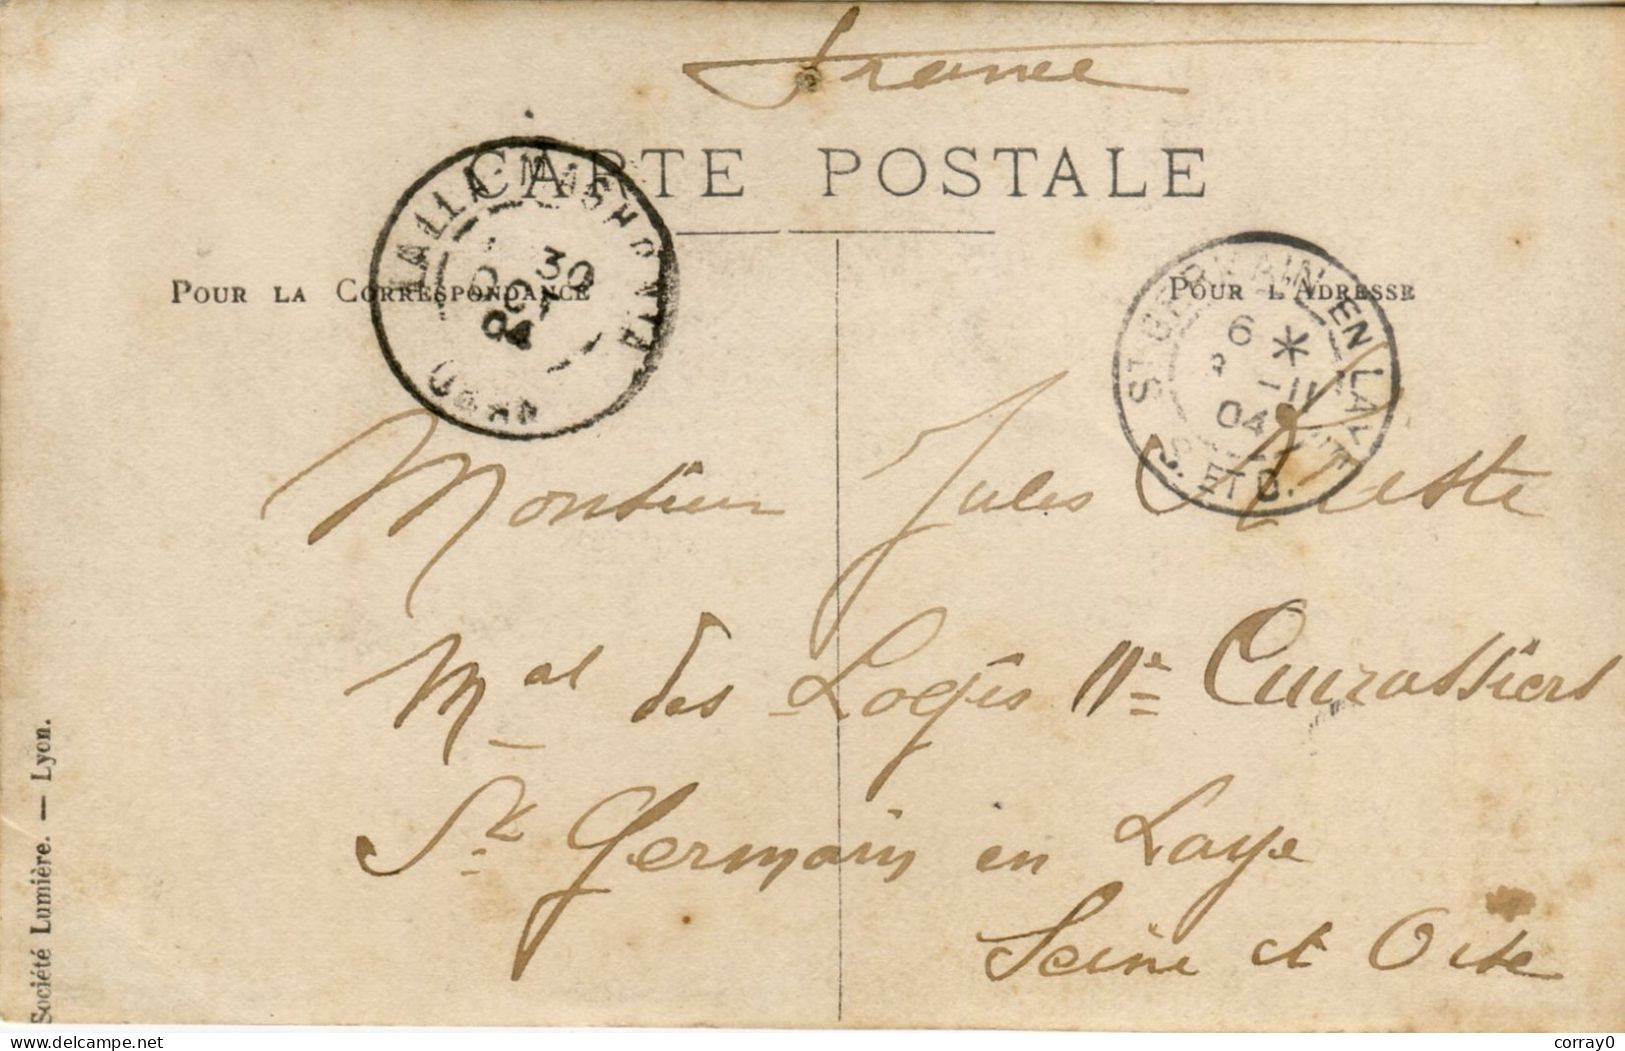 France
CARTE POSTALE
LALLA-MARNIA
30
OCT
04
ORAN
POUR LA CORRESPONDANCE
POUR L'ADRESSE
ST GERMAIN EN LAYE
6 *
-11
04
S. ET O.
Monsieur Jules
Mal des Logis 11e Cuirassiers
St Germain en Laye
Seine et Oise
Société Lumière. — Lyon.
corray0